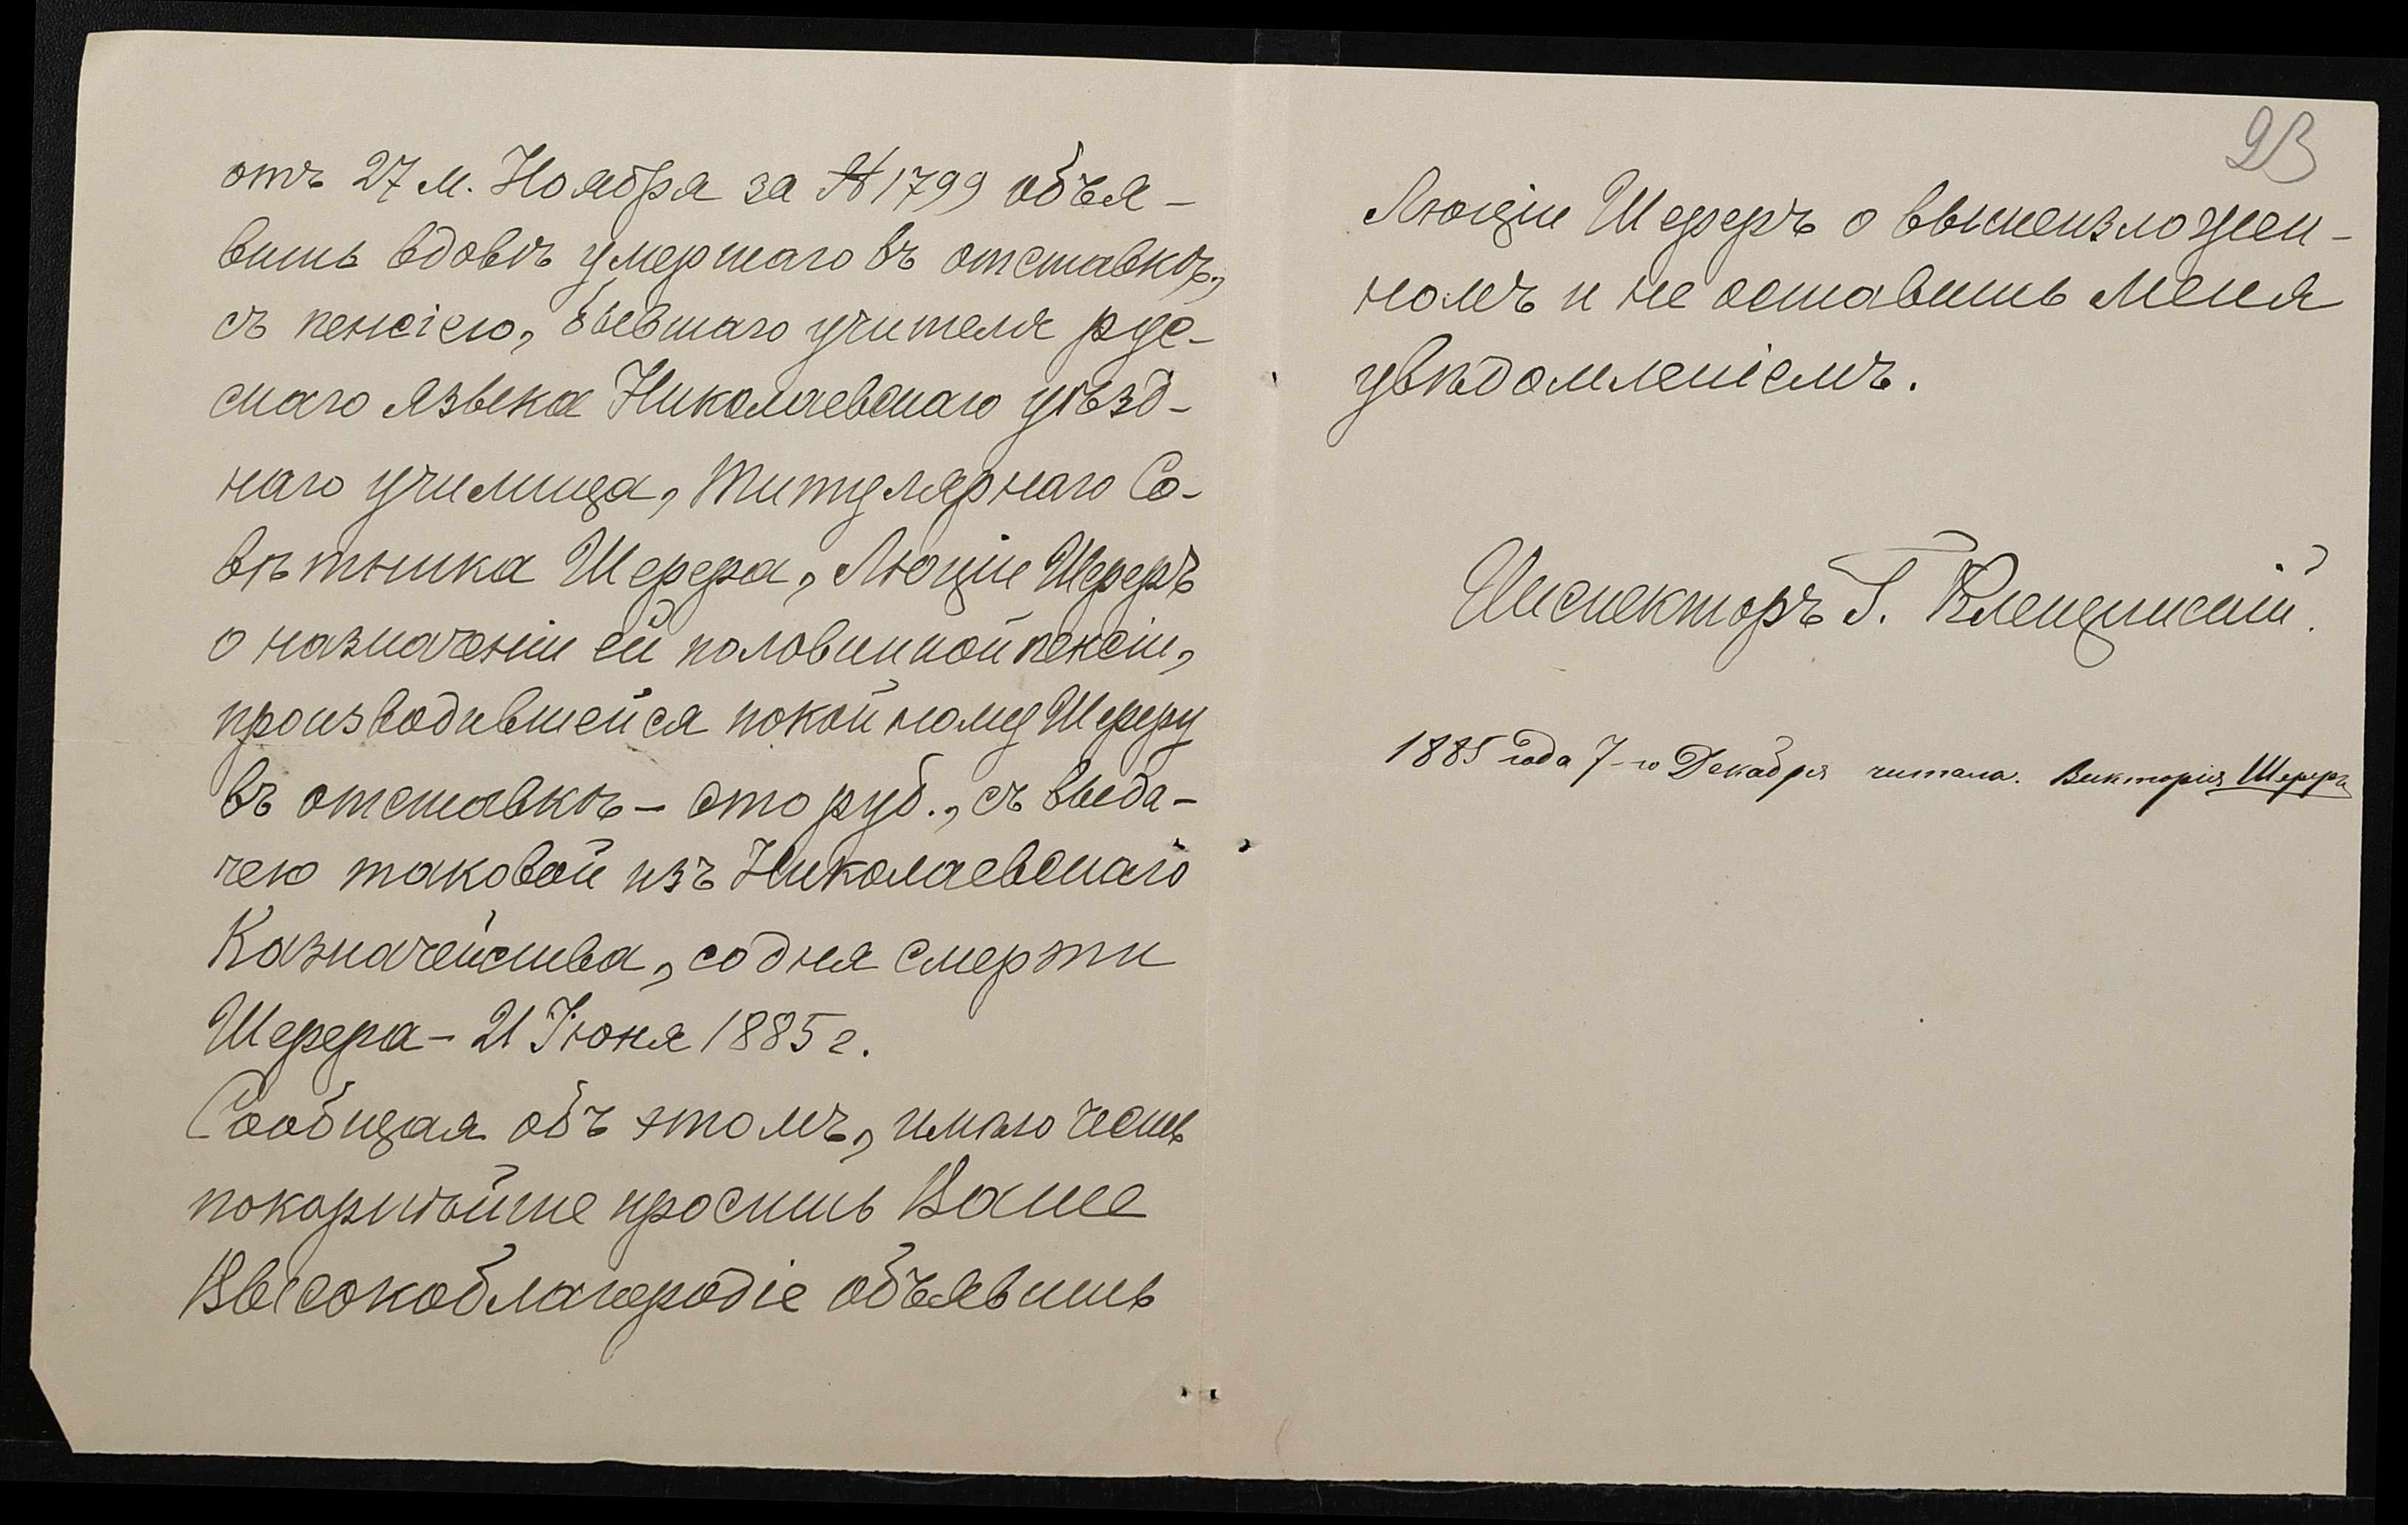 отъ 27 м. Ноября за № 1799 объя-
вить вдовѣ умершаго въ отставкѣ,
съ пенсіею, бывшаго учителя рус-
скаго языка Николаевскаго уѣзд-
наго училища, Титулярнаго Со-
вѣтника Шерера, Люціи Шереръ
о назначеніи ей половинной пенсіи,
производившейся покойному Шереру
въ отставкѣ - сто руб., съ выда-
чею таковой изъ Николаевскаго
Казначейства, со дня смерти
Шерера - 21 Іюня 1885 г.
Сообщая объ этомъ, имѣю честь
покорнѣйше просить Ваше
Высокоблагородіе объявить
23
Люціи Шереръ о вышеизложен-
номъ и не оставить меня
увѣдомленіемъ.
Инспекторъ Г.
1885 года 7-го Декабря читала. Викторія Шереръ